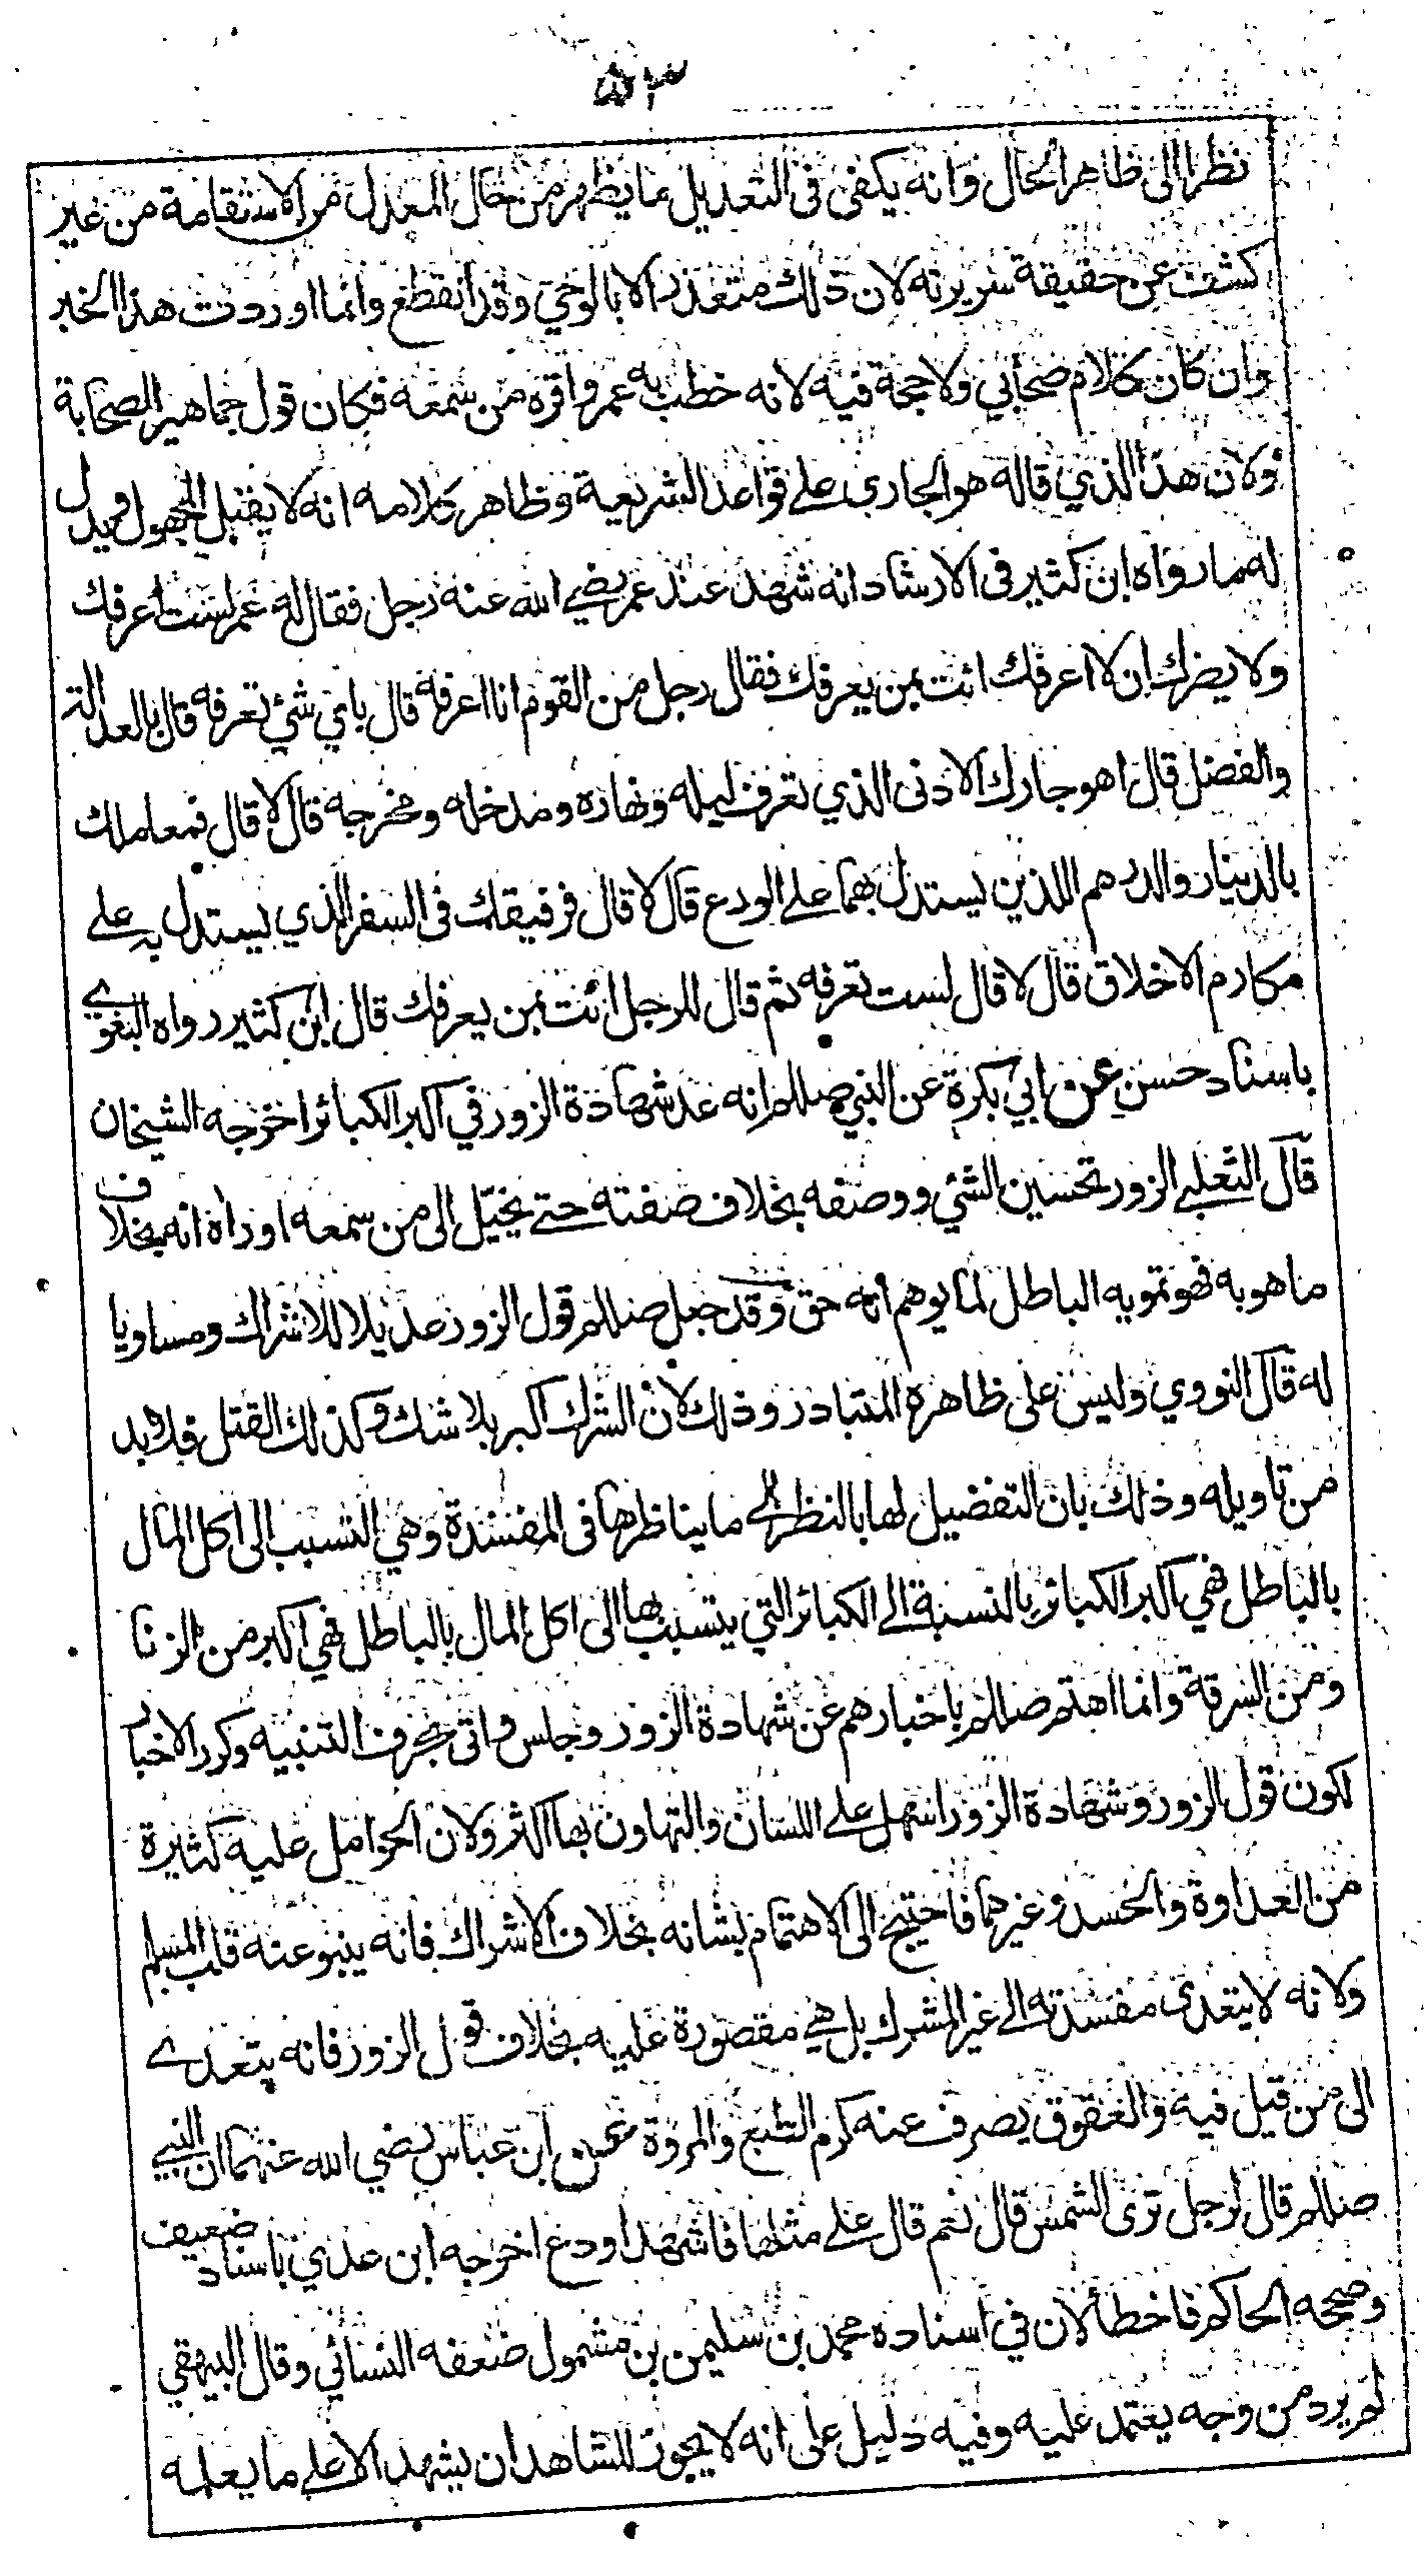 ٥٣
نظرا الى ظاهر الحال وانه يكفى فى التعديل ما يظهر من حال المعدل من الاستقامة من غير
كشف عن حقيقة سريرته لان ذلك متعذر الا بالوحي وقد انقطع وانما اوردت هذا الخبر
وان كان كلام صحابي ولا حجة فيه لانه خطب به عمر واقره من سمعه فكان قول جماهير الصحابة
ولان هذا الذي قاله هو الجارى على قواعد الشريعة وظاهر كلامه انه لا يقبل المجهول ويدل
له ما رواه ابن كثير فى الارشاد انه شهد عند عمر رضي الله عنه رجل فقال له عمر لست اعرفك
ولا يضرك ان لا اعرفك ائت بمن يعرفك فقال رجل من القوم انا اعرفه قال باي شئ تعرفه قال بالعدالة
والفضل قال اهو جارك الادنى الذي تعرف ليله ونهاره ومدخله ومخرجه قال لا قال فمعاملك
بالدينار والدرهم اللذين يستدل بهما على الورع قال لا قال فرفيقك فى السفر الذي يستدل به على
مكارم الاخلاق قال لا قال لست تعرفه ثم قال للرجل ائت بمن يعرفك قال ابن كثير رواه البغوي
باسناد حسن عن ابي بكرة عن النبي صللم انه عد شهادة الزور في اكبر الكبائر اخرجه الشيخان
قال الثعلبي الزور تحسين الشئ ووصفه بخلاف صفته حتى يخيّل الى من سمعه او راه انه بخلاف
ما هو به فهو تمويه الباطل لما يوهم انه حق وقد جعل صللم قول الزور عديلا للاشراك ومساويا
له قال النووي وليس على ظاهره المتبادر وذلك لان الشرك اكبر بلا شك وكذلك القتل فلا بد
من تاويله وذلك بان التفضيل لها بالنظر الى ما يناظرها فى المفسدة وهي التسبب الى اكل المال
بالباطل فهي اكبر الكبائر بالنسبة الى الكبائر التي يتسبب بها الى اكل المال بالباطل فهي اكبر من الزنا
ومن السرقة وانما اهتم صللم باخبارهم عن شهادة الزور وجلس واتى بحرف التنبيه وكرر الاخبار
لكون قول الزور وشهادة الزور اسهل على اللسان والتهاون بها اكثر ولان الحوامل عليه كثيرة
من العداوة والحسد وغيرهما فاحتيج الى الاهتمام بشانه بخلاف الاشراك فانه ينبو عنه قلب المسلم
ولانه لا يتعدى مفسدته الى غير المشرك بل هي مقصورة عليه بخلاف قول الزور فانه يتعدى
الى من قيل فيه والعقوق يصرف عنه كرم الطبع والمروة عن ابن عباس رضي الله عنهما ان النبي
صللم قال لرجل ترى الشمس قال نعم قال على مثلها فاشهد او دع اخرجه ابن عدي باسناد ضعيف
وصححه الحاكم فاخطأ لان في اسناده محمد بن سليمن بن مشمول ضعفه النسائي وقال البيهقي
لم يرد من وجه يعتمد عليه وفيه دليل على انه لا يجوز للشاهد ان يشهد الا على ما يعلمه